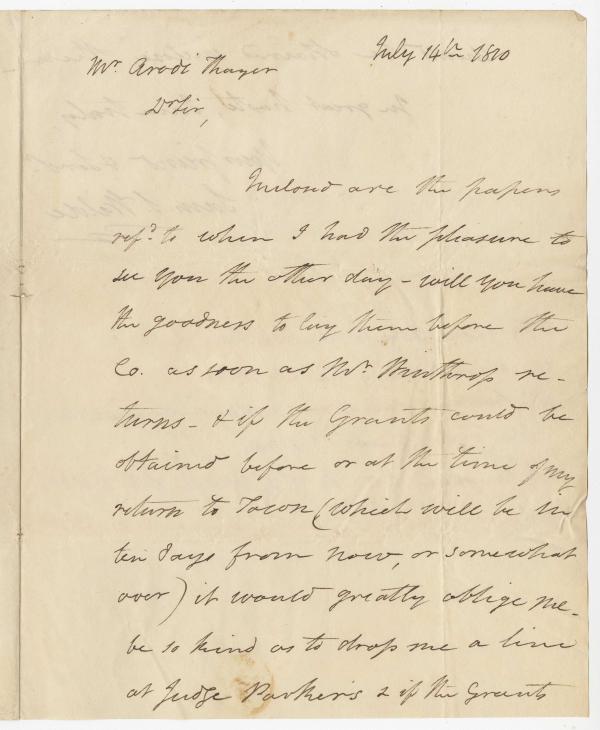 July 14th 1810
Mr. Arodi Thayer
Dr Sir,
Inclosd are the papers
refd. to when I had the pleasure to
see you the other day - will you have
the goodness to lay them before the
Co. as soon as Mr. Winthrop re-
turns - & if the Grants could be
obtained before or at the time of my
return to Town (which will be in
ten days from now, or somewhat
over) it would greatly oblige me -
be so kind as to drop me a line
at Judge Parker's & if the Grants